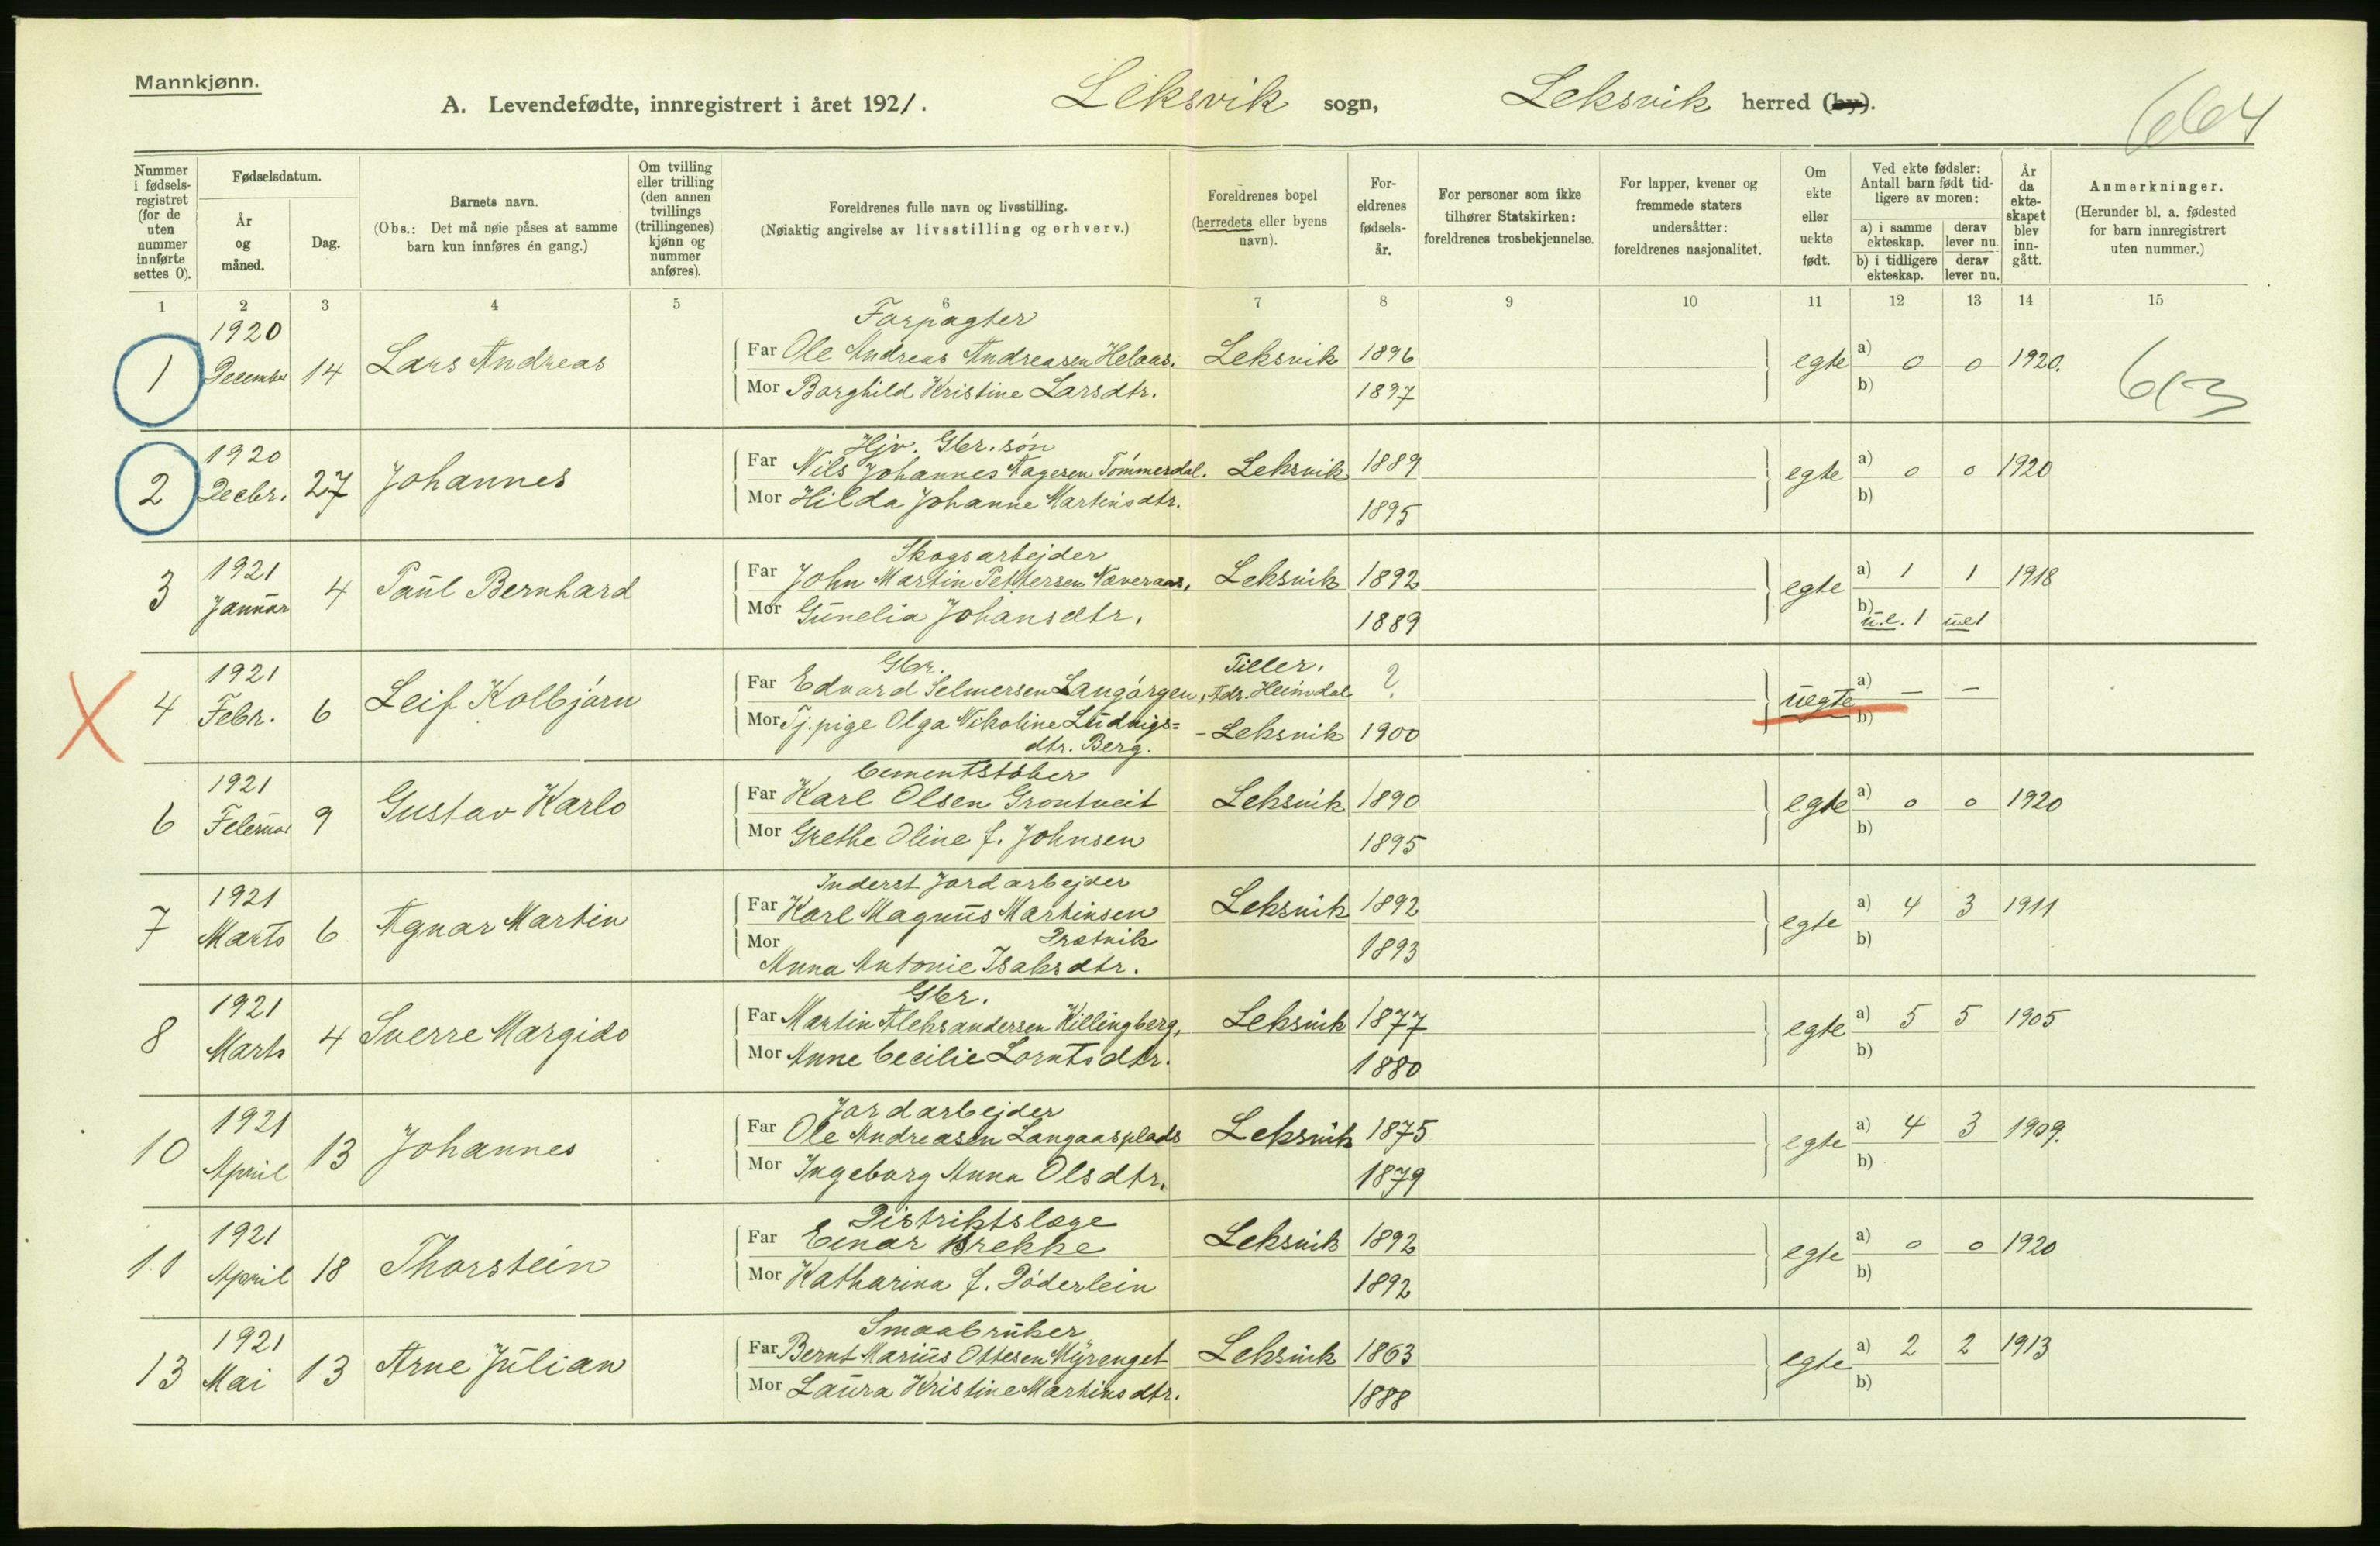 Mannkjønn.
A. Levendefødte, innregistrert i året 1921. Leksvik sogn, Leksvik herred (by).
664
Nummer i fødsels-registret (for de uten nummer innførte settes 0).
Fødselsdatum.
År og måned.
Dag.
Barnets navn.
(Obs.: Det må nøie påses at samme barn kun innføres én gang.)
Om tvilling eller trilling (den annen tvillings (trillingenes) kjønn og nummer anføres).
Foreldrenes fulle navn og livsstilling.
(Nøiaktig angivelse av livsstilling og erhverv.)
Foreldrenes bopel (herredets eller byens navn).
For-eldrenes fødsels-år.
For personer som ikke tilhører Statskirken: foreldrenes trosbekjennelse.
For lapper, kvener og fremmede staters undersåtter: foreldrenes nasjonalitet.
Om ekte eller uekte født.
Ved ekte fødsler: Antall barn født tid-ligere av moren:
a) i samme ekteskap. derav lever nu.
b) i tidligere ekteskap. derav lever nu.
År da ekte-skapet blev inn-gått.
Anmerkninger.
(Herunder bl. a. fødested for barn innregistrert uten nummer.)
1 2 3 4 5 6 7 8 9 10 11 12 13 14 15
1920 Forpagter
1 December 14 Lars Andreas Far Ole Andreas Andreasen Helaas. Leksvik 1896 egte a) 0 0 1920.
Mor Borghild Kristine Larsdtr. 1897 b)
1920 Hjv. Gbr. søn
2 Decbr. 27 Johannes Far Nils Johannes Aagesen Tømmerdal. Leksvik 1889 egte a) 0 0 1920
Mor Hilda Johanne Martinsdtr. 1895 b)
1921 Skogsarbejder
3 Januar 4 Paul Bernhard Far John Martin Pettersen Næveraas. Leksvik 1892 egte a) 1 1 1918
Mor Gunelia Johansdtr. 1889 b) u.e. 1 ue1
1921 Gbr. Tiller.
X 4 Febr. 6 Leif Kolbjørn Far Edvard Selmersen Langørgen, Adr. Heimdal ? uegte a) — —
Mor Tj.pige Olga Nikoline Ludvigs= - Leksvik 1900 b)
dtr. Berg.
1921 Cementstøber
6 Februar 9 Gustav Karlo Far Karl Olsen Grontveit Leksvik 1890 egte a) 0 0 1920
Mor Grethe Oline f. Johnsen 1895 b)
1921 Inderst Jordarbejder
7 Marts 6 Agnar Martin Far Karl Magnus Martinsen Leksvik 1892 egte a) 4 3 1911
Mor Prætvik 1893 b)
Anna Antonie Isaksdtr.
1921 Gbr.
8 Marts 4 Sverre Margido Far Martin Aleksandersen Killingberg, Leksvik 1877 egte a) 5 5 1905
Mor Anne Cecilie Lorntsdtr. 1880 b)
1921 Jordarbejder
10 April 13 Johannes Far Ole Andreasen Langaasplads Leksvik 1875 egte a) 4 3 1909.
Mor Ingeborg Anna Olsdtr. 1879 b)
1921 Distriktslæge
11 April 18 Thorstein Far Einar Brekke Leksvik 1892 egte a) 0 0 1920
Mor Katharina f. Döderlein 1892 b)
1921 Smaabruker
13 Mai 13 Arne Julian Far Bernt Marius Ottesen Myrenget Leksvik 1863 egte a) 2 2 1913
Mor Laura Kristine Martinsdtr. 1888 b)